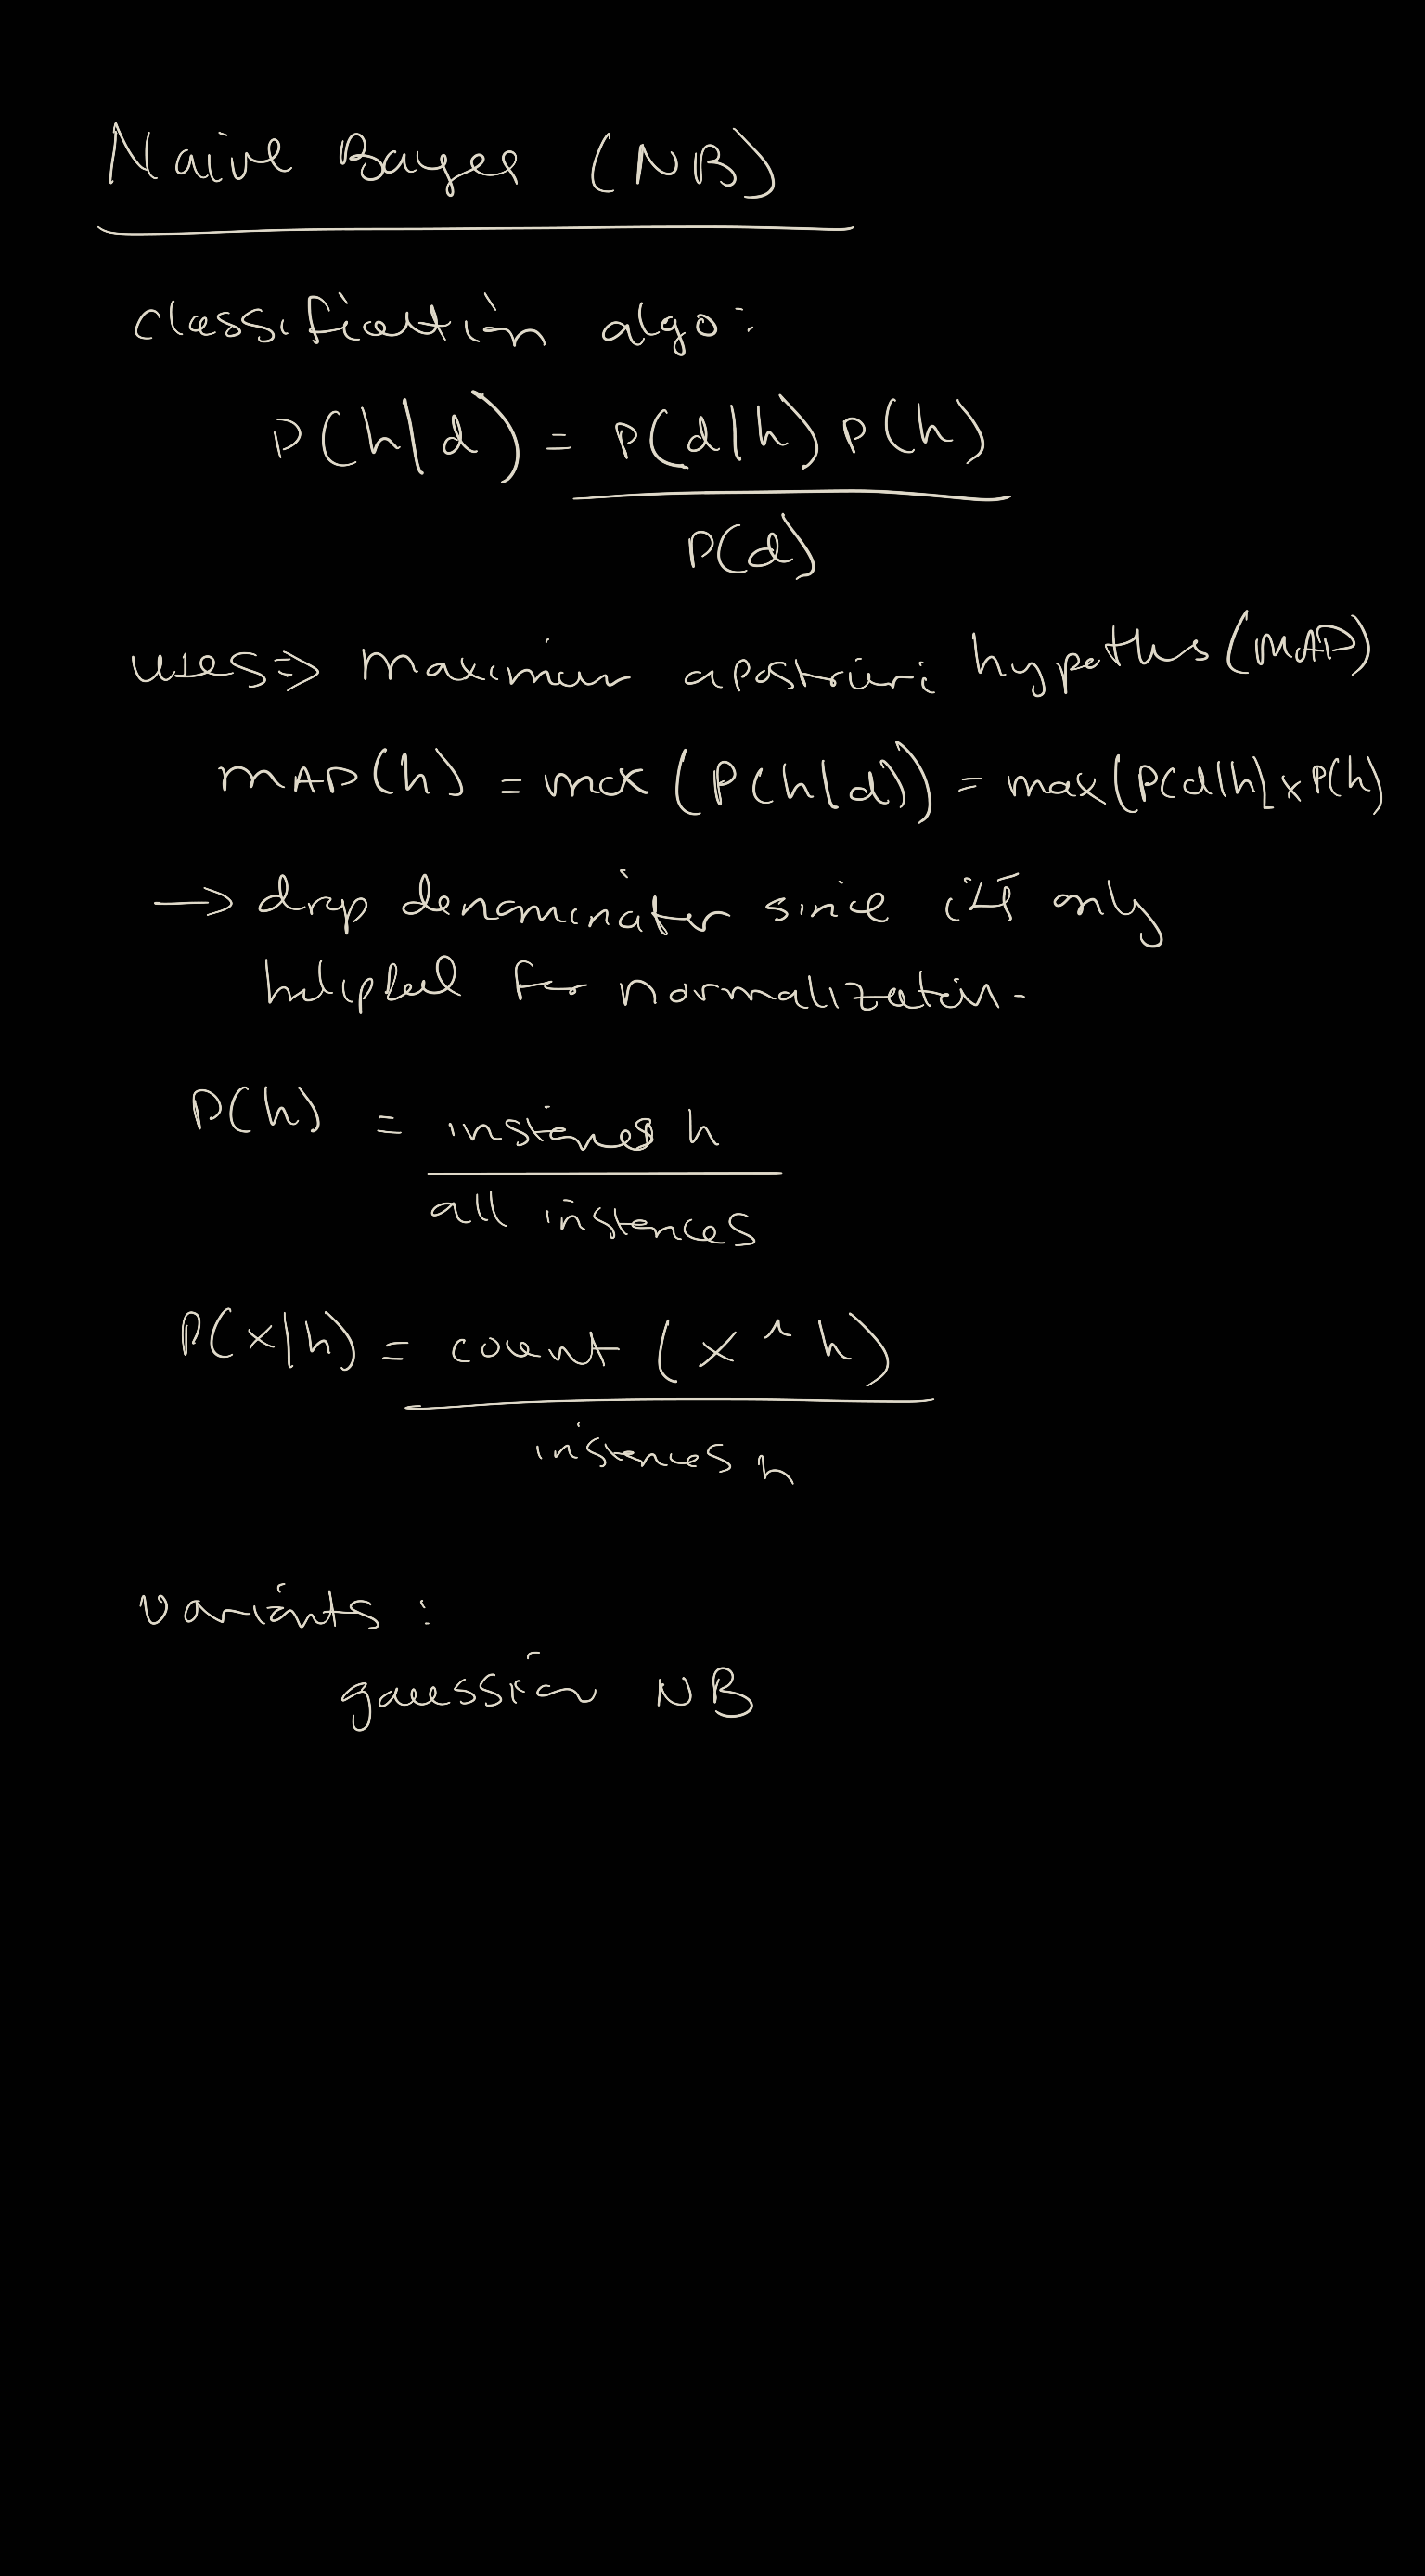 Naive Bayes (NB)
classification algo:
P(h|d) = P(d|h) P(h)
P(d)
uses => maximum aposteriori hypoths (MAP)
MAP(h) = max (P(h|d)) = max (P(d|h) x P(h)
→ drop denominator since it's only
helpful for normalization.
P(h) = instances h
all instances
P(x|h) = count (x ^ h)
instances h
variants :
gaussian NB